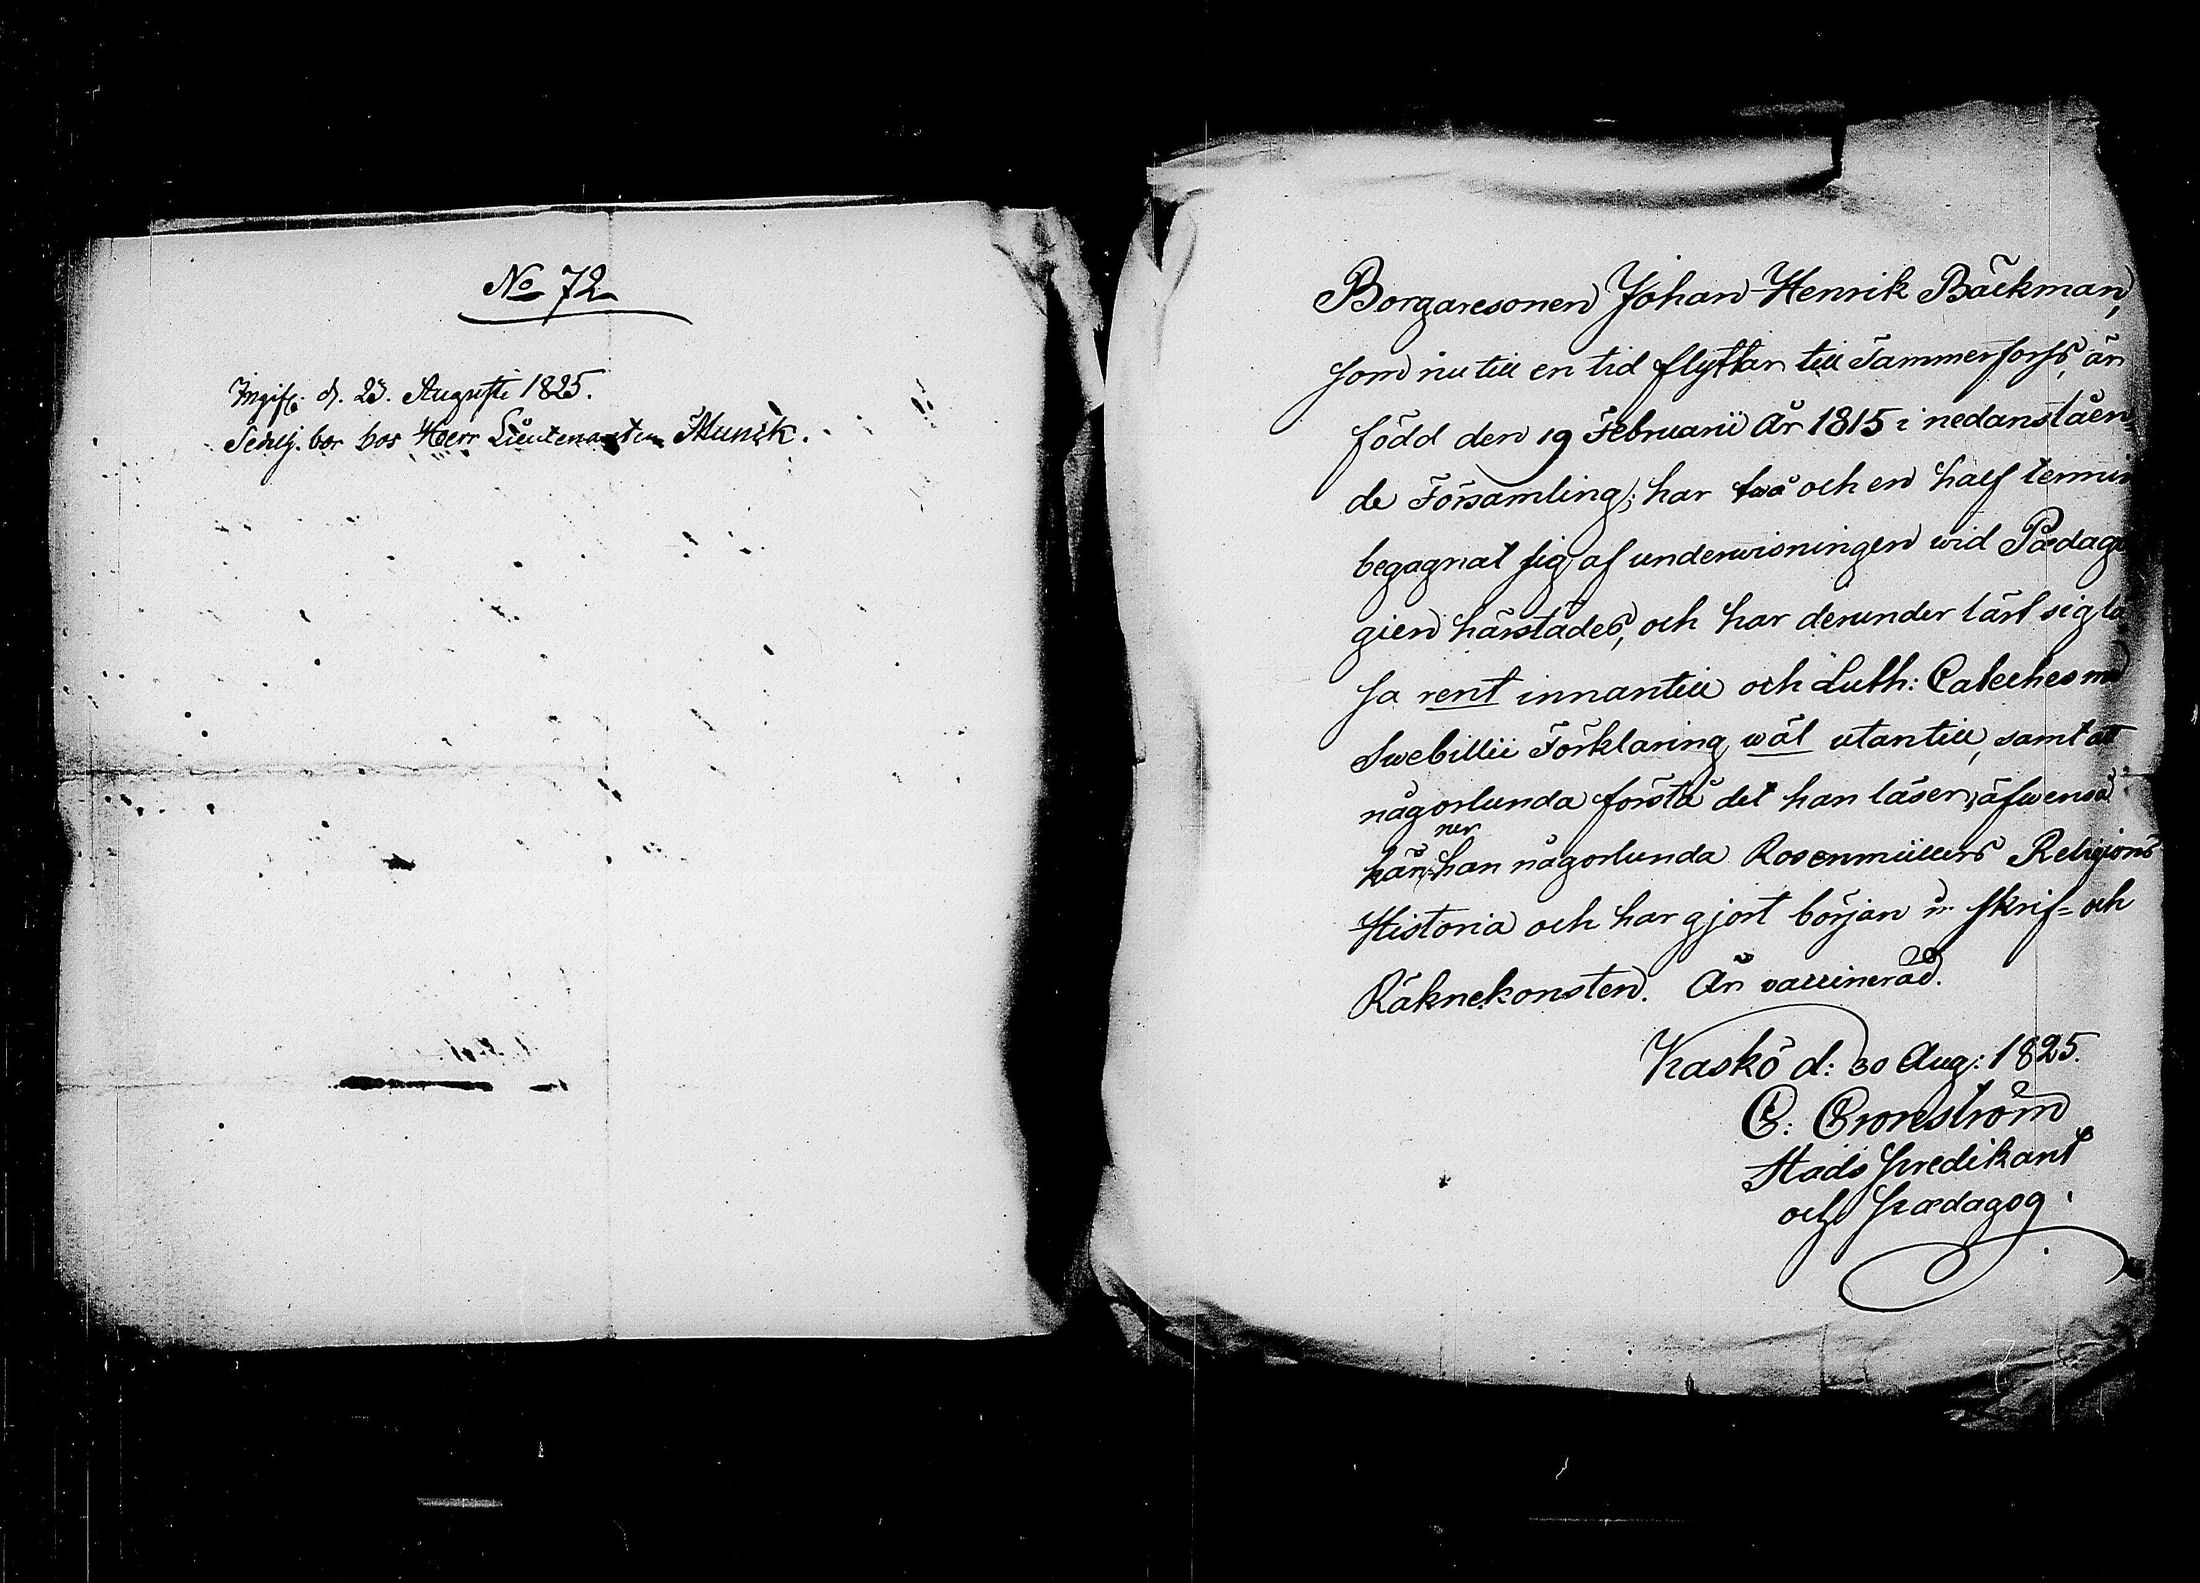 No 72
Ingif. d. 23. Augusti 1825.
bor hos Herr Lieutenanten Munck.
Borgaresonen Johan Henrik Bäckman,
som nu till en tid flyttar till Tammerforss, är
född den 19 Februarii År 1815 i nedanståen-
de Församling; har twå och en half termin
begagnat sig af underwisningen wid Pædago
gien härstädes, och har derunder lärt sig lä
sa rent innantill och Luth: Cateches med
Swebillii Förklaring wäl utantill, samt att
någorlunda förstå det han läser, äfwenså
kän-ner han någorlunda Rosenmüllers Religions
Historia och har gjort början i skrif- och
Räknekonsten. Är vaccinerad.
Kaskö d: 30 Aug: 1825.
C: Cronström
Stads Predikant
och Pædagog.